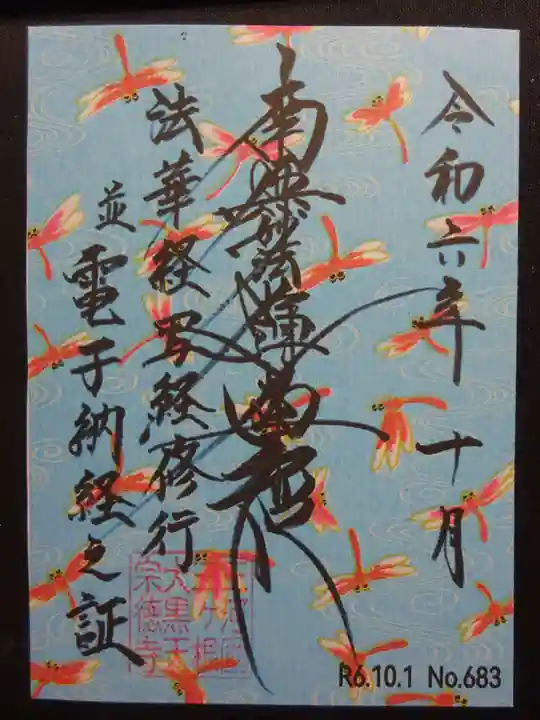 令和六年 十月
南無妙法蓮華経
法華経写経修行
並電子納経之証
大黒天
宗徳寺
R6.10.1 No.683